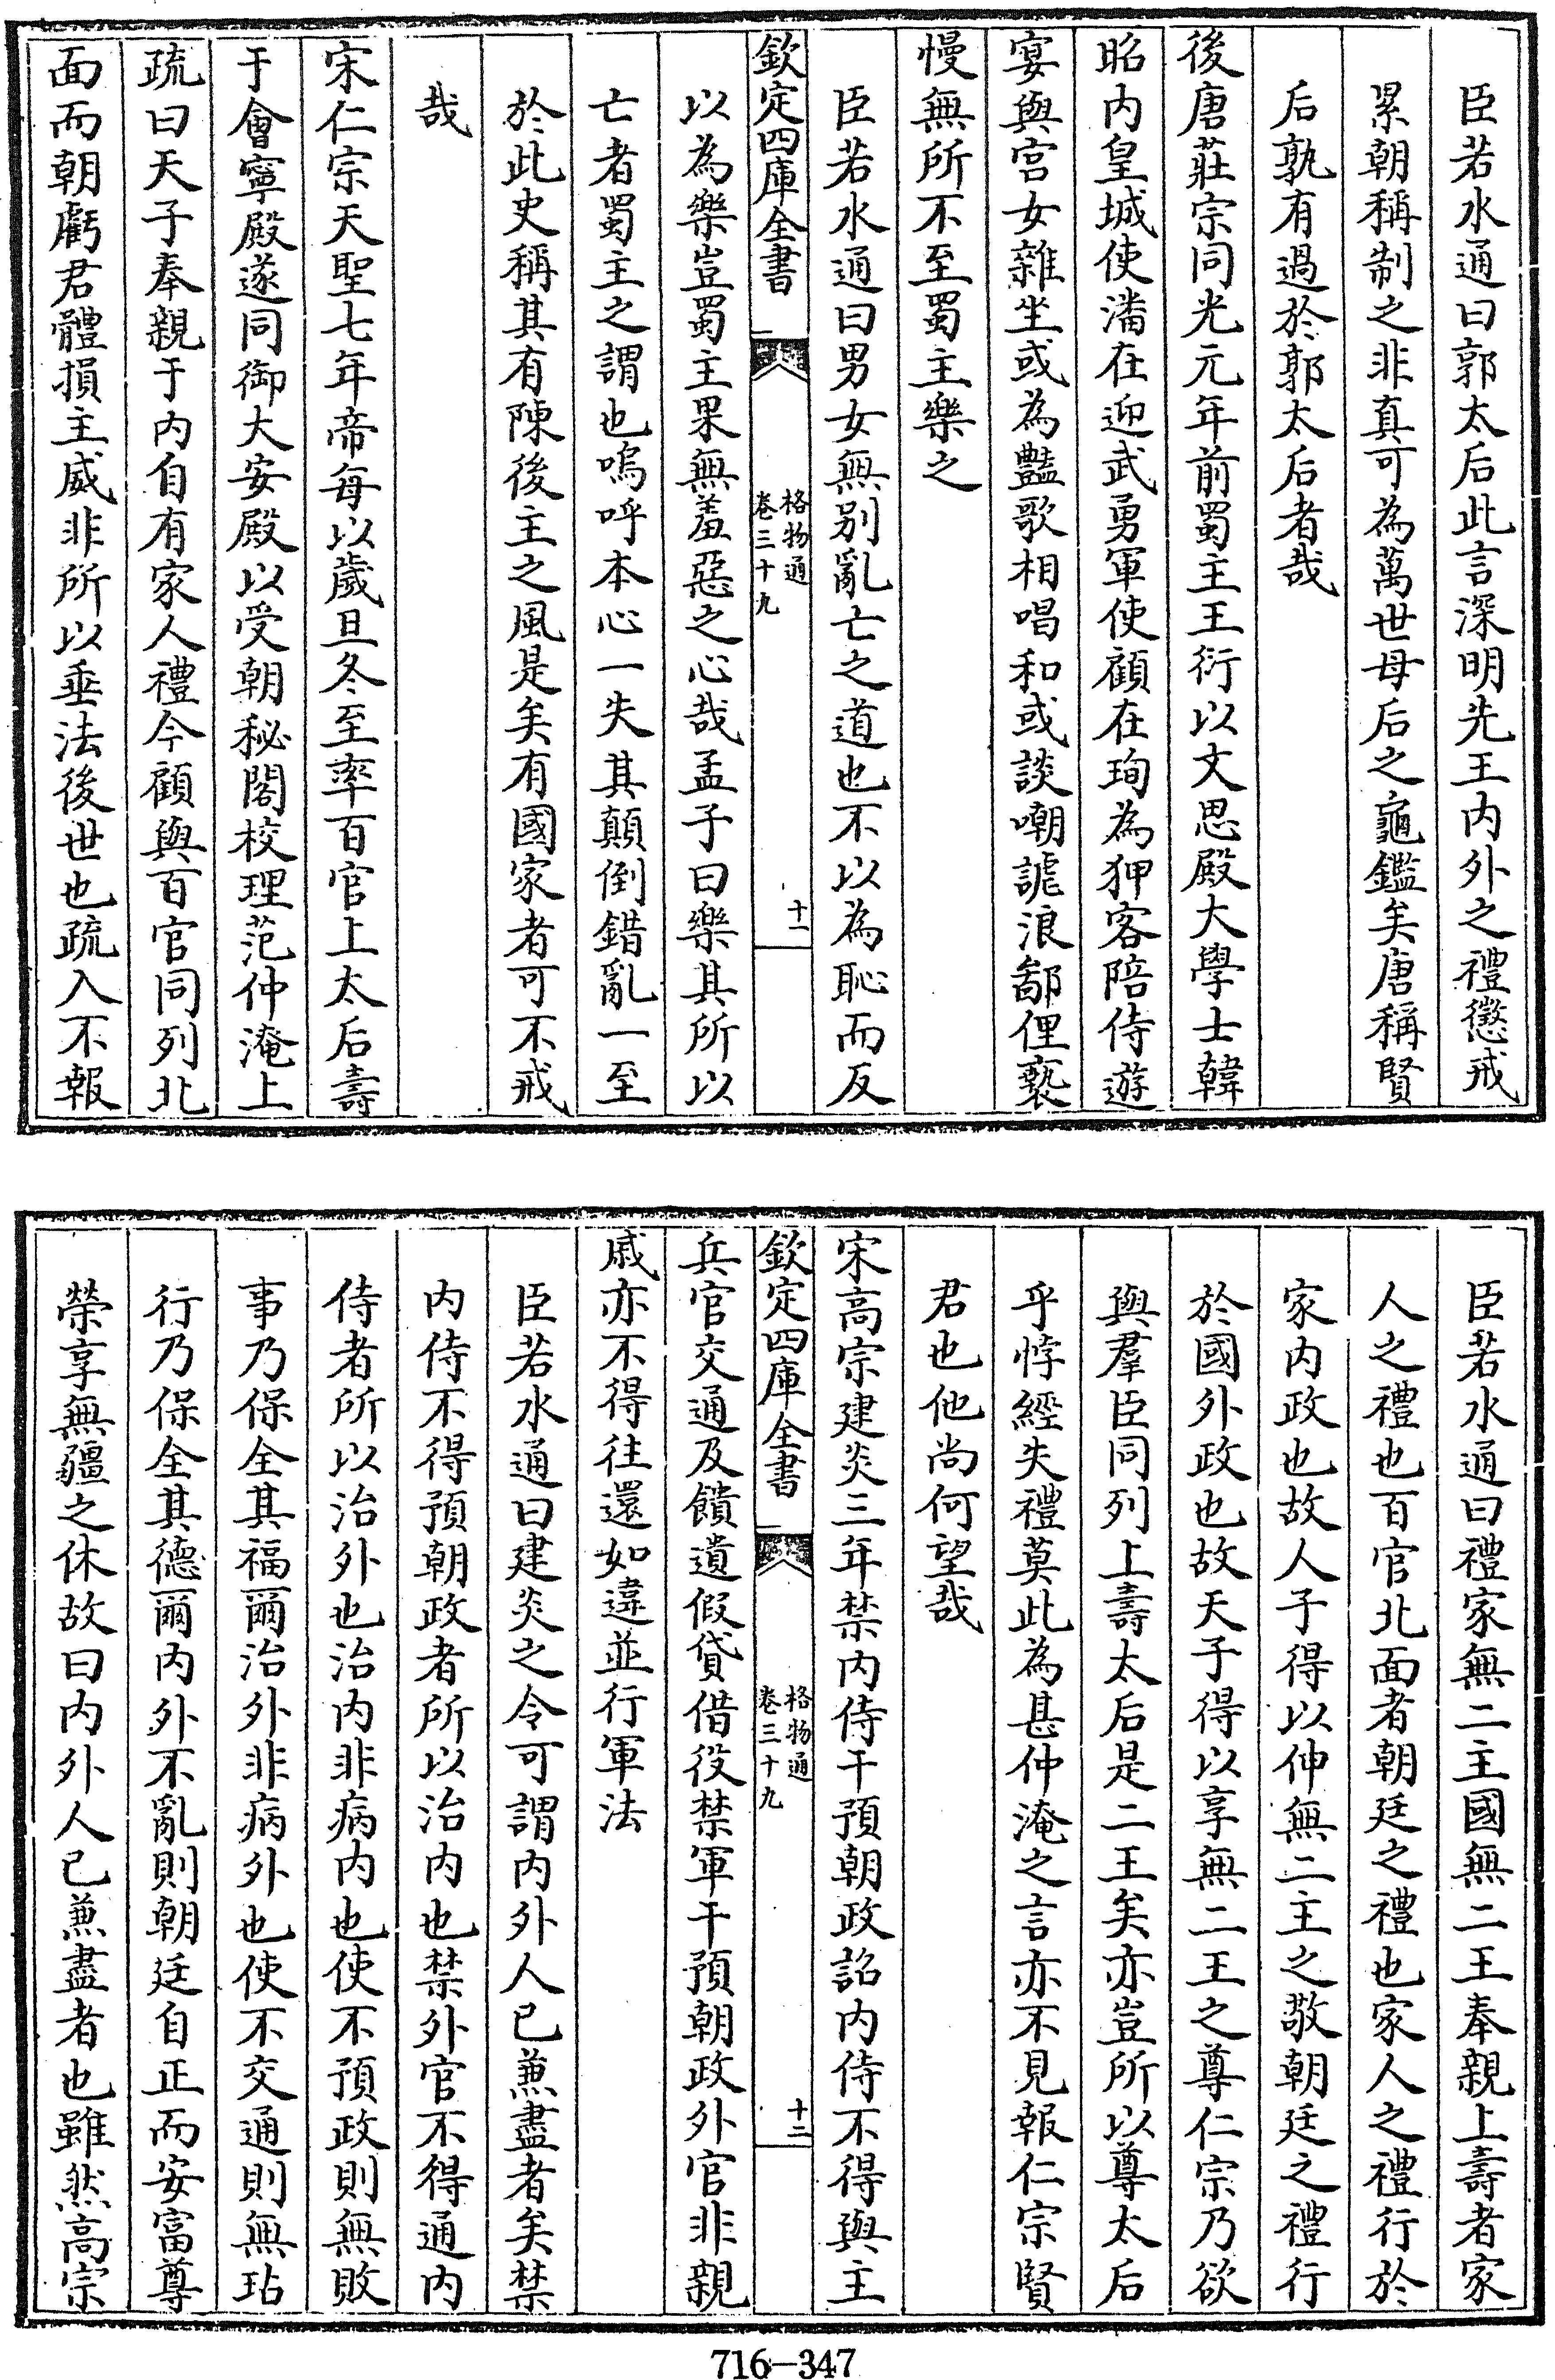 臣若水通曰郭太后此言深明先王内外之禮懲戒
累朝稱制之非真可為萬世母后之龜鑑矣唐稱賢
后孰有過於郭太后者哉
後唐莊宗同光元年前蜀主王衍以文思殿大學士韓
昭内皇城使潘在迎武勇軍使顧在珣為狎客陪侍遊
宴與宫女雜坐或為豔歌相唱和或談嘲謔浪鄙俚褻
慢無所不至蜀主樂之
臣若水通曰男女無别亂亡之道也不以為恥而反
欽定四庫全書
格物通
卷三十九
十一
以為樂豈蜀主果無羞惡之心哉孟子曰樂其所以
亡者蜀主之謂也嗚呼本心一失其顛倒錯亂一至
於此史稱其有陳後主之風是矣有國家者可不戒
哉
宋仁宗天聖七年帝每以歲旦冬至率百官上太后壽
于會寧殿遂同御大安殿以受朝秘閣校理范仲淹上
疏曰天子奉親于内自有家人禮今顧與百官同列北
面而朝虧君體損主威非所以垂法後世也疏入不報
臣若水通曰禮家無二主國無二王奉親上壽者家
人之禮也百官北面者朝廷之禮也家人之禮行於
家内政也故人子得以伸無二主之敬朝廷之禮行
於國外政也故天子得以享無二王之尊仁宗乃欲
與羣臣同列上壽太后是二王矣亦豈所以尊太后
乎悖經失禮莫此為甚仲淹之言亦不見報仁宗賢
君也他尚何望哉
宋高宗建炎三年禁内侍干預朝政詔内侍不得與主
欽定四庫全書
格物通
卷三十九
十二
兵官交通及饋遺假貸借役禁軍干預朝政外官非親
戚亦不得往還如違並行軍法
臣若水通曰建炎之令可謂内外人已兼盡者矣禁
内侍不得預朝政者所以治内也禁外官不得通内
侍者所以治外也治内非病内也使不預政則無敗
事乃保全其福爾治外非病外也使不交通則無玷
行乃保全其德爾内外不亂則朝廷自正而安富尊
榮享無疆之休故曰内外人已兼盡者也雖然高宗
716-347